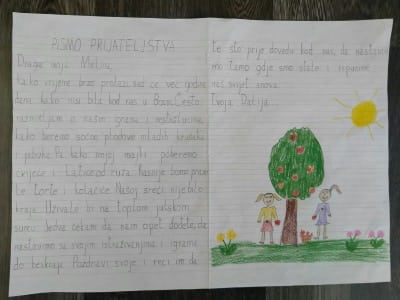 PISMO PRIJATELJSTVA
Draga moja Merjem,
kako vrijeme brzo prolazi, sad će već godina
dana kako nisi bila kod nas u Bosni. Često
razmišljam o našim igrama i nestašlucima,
kako beremo sočne plodove mladih krušaka
i jabuka. Pa kako mojoj majki poberemo
cvijeće i latice od ruža. Kasnije bismo pravile
te torte i kolačiće. Našoj sreći nije bilo
kraja. Uživale bi na toplom julskom
suncu. Jedva čekam da nam opet dođete, da
nastavimo sa svojim istraživanjima i igrama
do beskraja. Pozdravi svoje i reci im da
te što prije dovedu kod nas, da nastavi
mo tamo gdje smo stale i ispunimo
naš svijet snova.
Tvoja